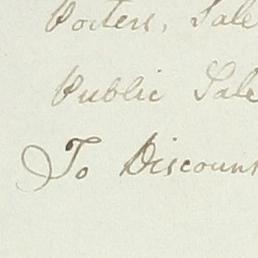 Porters, Sale
Public Sale
To Discount